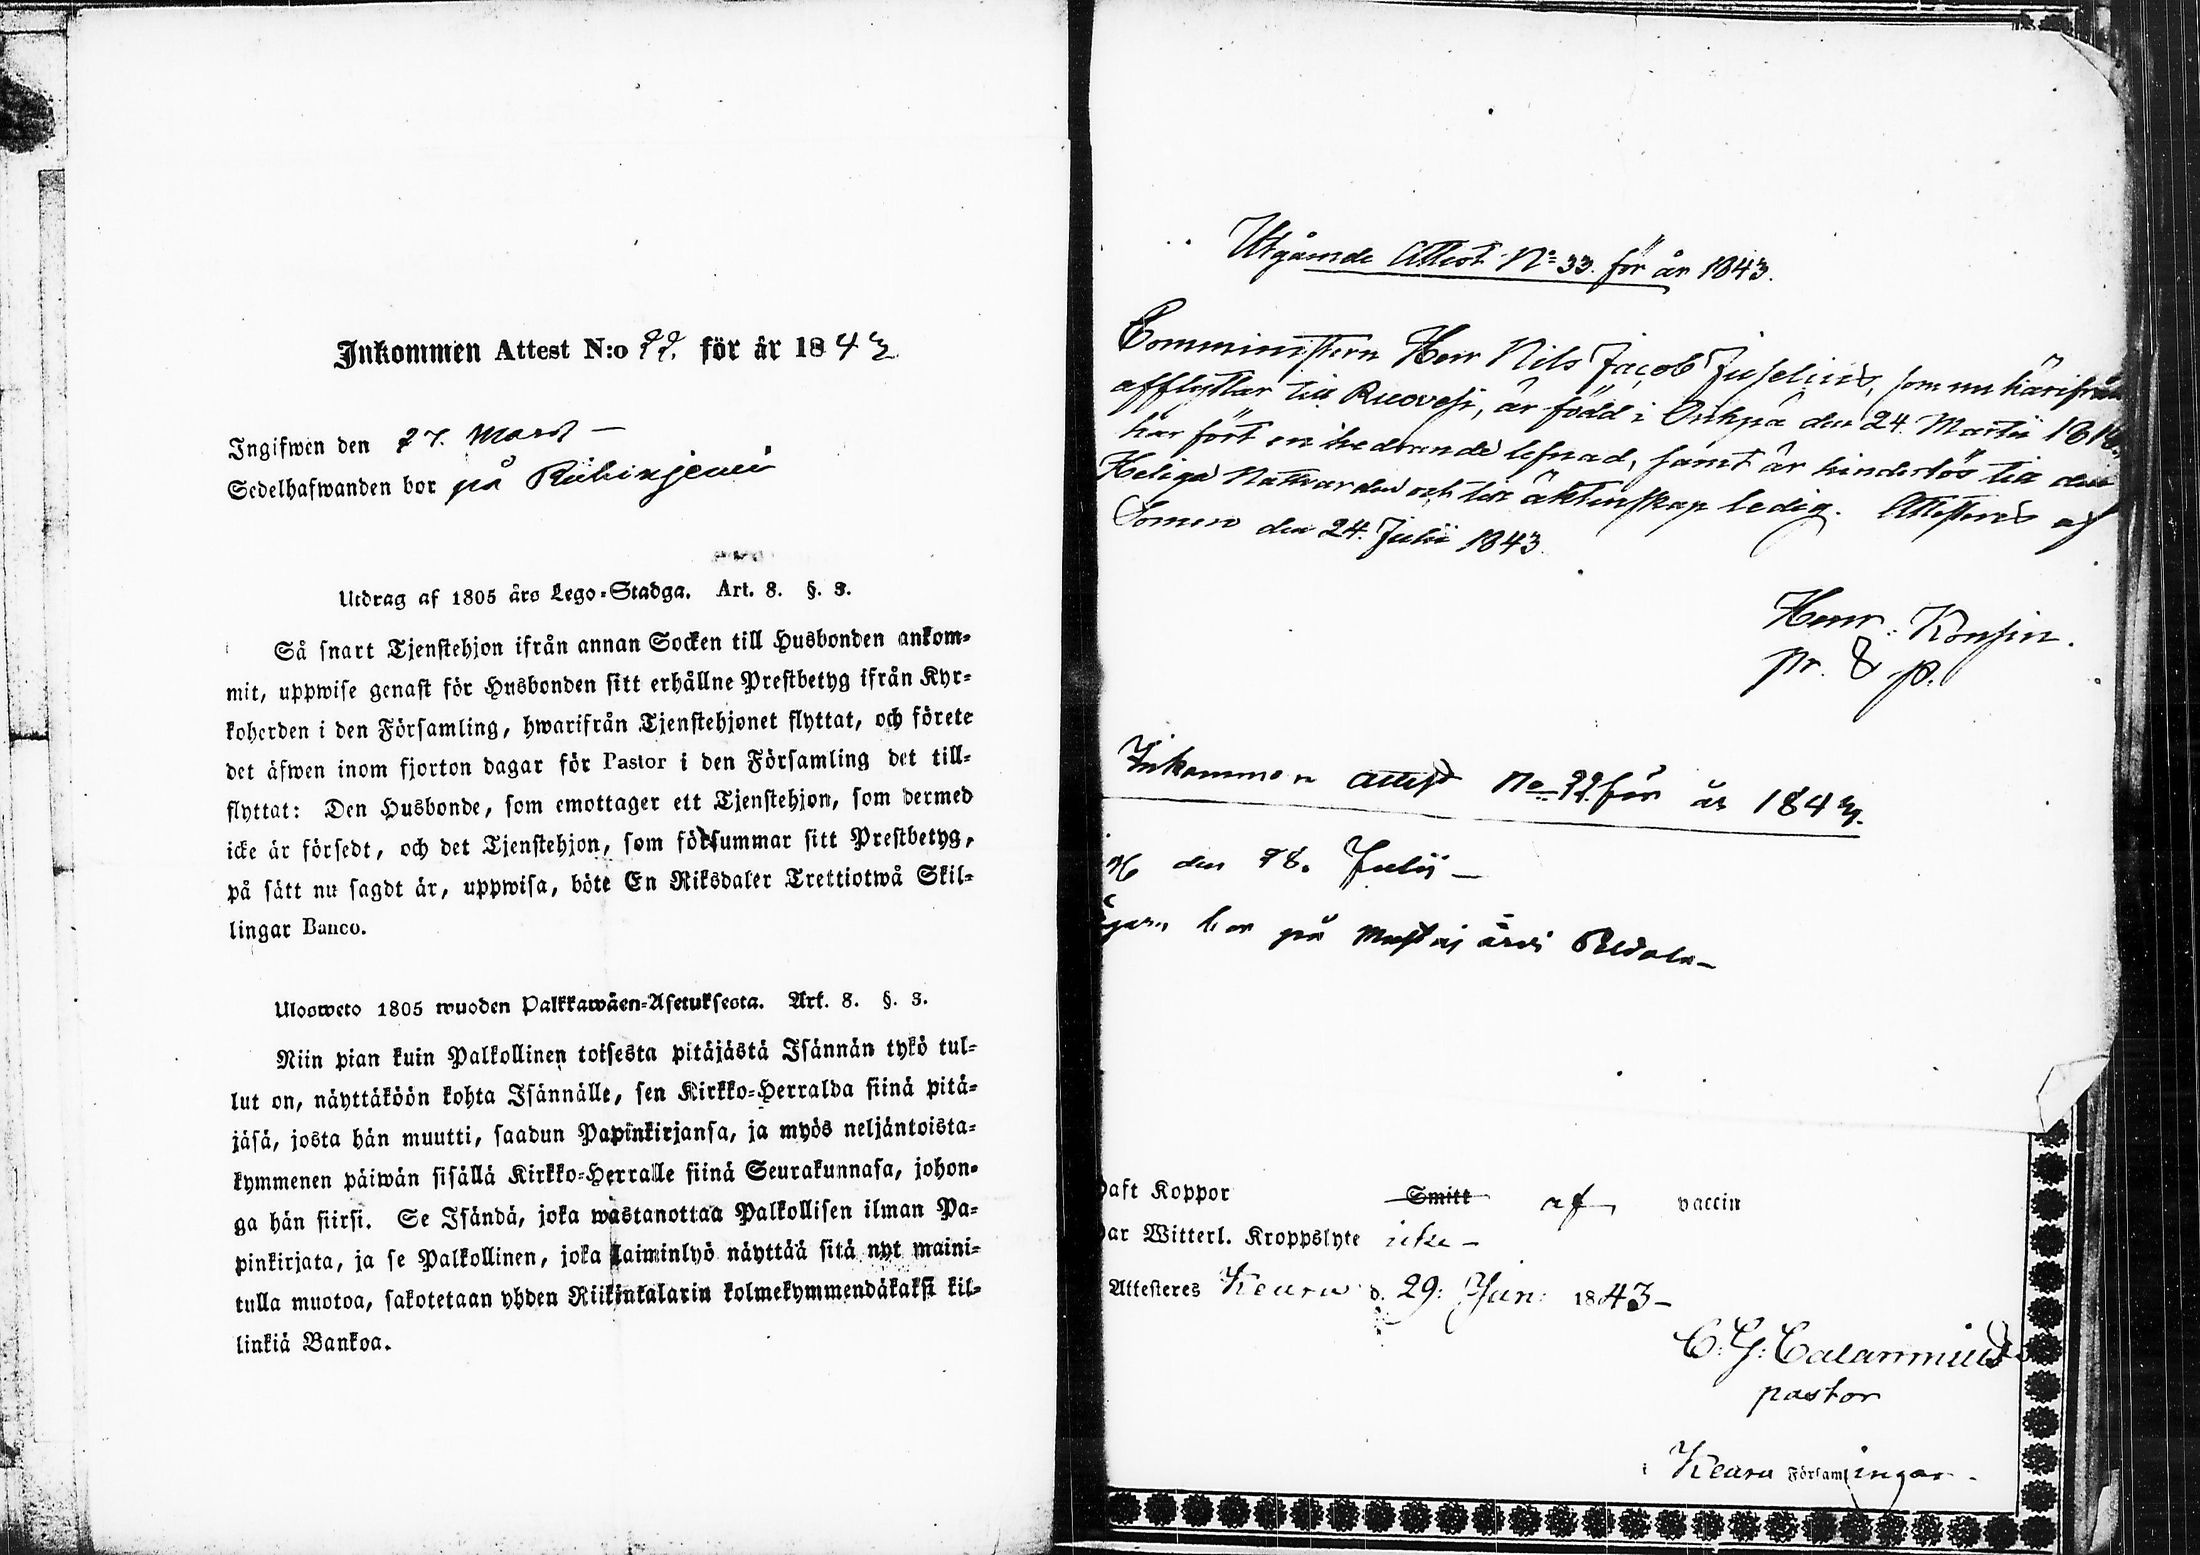 Inkommen Attest N:o 22. för år 1843
Ingifwen den 27. Mars –
Sedelhafwanden bor på
Utdrag af 1805 års Lego-Stadga. Art. 8. §. 3.
Så snart Tjenstehjon ifrån annan Socken till Husbonden ankom-
mit, uppwise genast för Husbonden sitt erhållne Prestbetyg ifrån Kyr-
koherden i den Församling, hwarifrån Tjenstehjonet flyttat, och förete
det äfwen inom fjorton dagar för Pastor i den Församling det till-
flyttat: Den Husbonde, som emottager ett Tjenstehjon, som dermed
icke är försedt, och det Tjenstehjon, som försummar sitt Prestbetyg,
på sätt nu sagdt är, uppwisa, böte En Riksdaler Trettiotwå Skil-
lingar Banco.
Ulosweto 1805 wuoden Palkkawäen-Asetuksesta. Art. 8. §. 3.
Niin pian kuin Palkollinen toisesta pitäjästä Isännän tykö tul-
lut on, näyttäköön kohta Isännälle, sen Kirkko-Herralda siinä pitä-
jäsä, josta hän muutti, saadun Papinkirjansa, ja myös neljäntoista-
kymmenen päiwän sisällä Kirkko-Herralle siinä Seurakunnasa, johon-
ga hän siirsi. Se Isändä, joka wastanottaa Palkollisen ilman Pa-
pinkirjata, ja se Palkollinen, joka laiminlyö näyttää sitä nyt maini-
tulla muotoa, sakotetaan yhden Riikinkalarin kolmekymmendäkaksi kil-
linkiä Bankoa.
Utgående Attest No 33. för år 1843.
Comministern Herr Nils Jacob Juselius, som nu härifrån
afflyttar till Ruovesi, är född i Orihpä den 24 Martii 181
har fört en hedrande lefnad, samt är hinderlös till den
Heliga Nattvarden och till äktenskap ledig. Attesteras af
Somero den 24. Julii 1843.
Henr.
pr. & p.
Inkommen attest No 99. för år 1843.
den 28. Julii –
bor på
haft Koppor Smitt af vaccin
har Witterl. Kroppslyte icke –
Attesteres Keuru d. 29: Jun: 1843 –
C. G. Calamnius
pastor
i Keuru Församlingar.